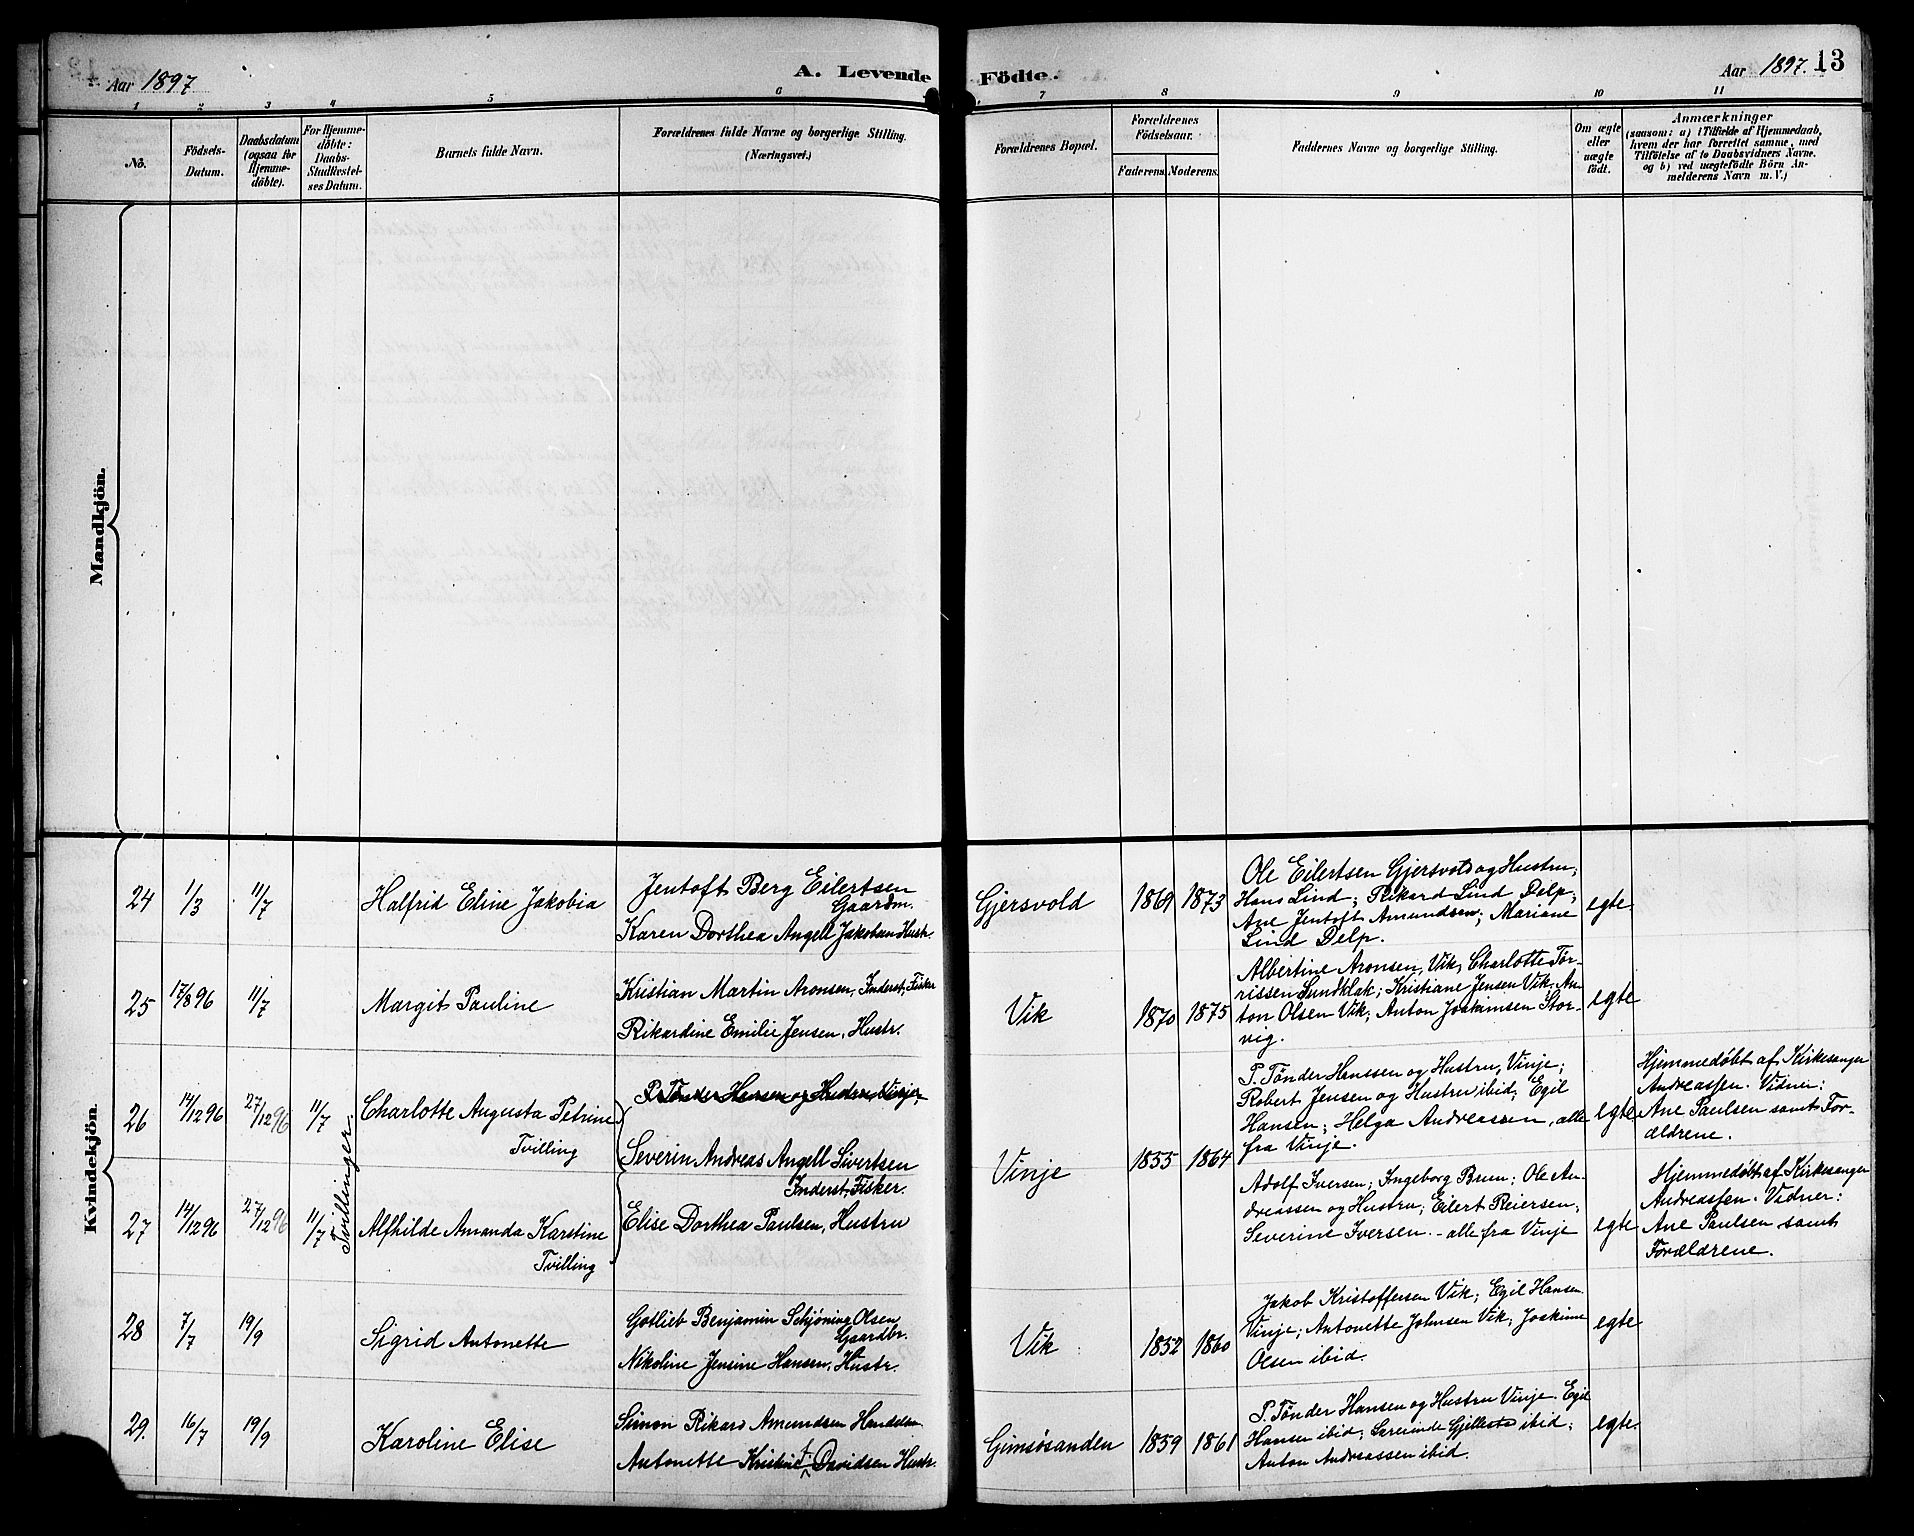 Aar 1897
A. Levende
Födte.
Aar 1897. 13
1 2 3 4 5 6 7 8 9 10 11
No.
Födsels-
Datum.
Daabsdatum
(ogsaa for
Hjemme-
döbte).
For Hjemme-
döbte:
Daabs-
Stadfæstel-
ses Datum.
Barnets fulde Navn.
Forældrenes fulde Navne og borgerlige Stilling.
(Næringsvei.)
Forældrenes Bopæl.
Forældrenes
Födselsaar.
Faderens. Moderens.
Faddernes Navne og borgerlige Stilling.
Om ægte
eller
uægte
födt.
Anmærkninger
(saasom: a) i Tilfælde af Hjemmedaab,
hvem der har forrettet samme, med
Tilföielse af to Daabsvidners Navne,
og b) ved uægtefödte Börn An-
melderens Navn m. V.)
Mandkjön.
Kvindekjön.
24 1/3 11/7 Halfrid Eline Jakobia
Jentoft Berg Eilertsen
Gaardm.
Karen Dorthea Angell Jakobsen Hustr.
Gjersvold 1869 1873
Ole Eilertsen Gjersvold og Hustru;
Hans Lind; Rikard Lind Delp;
Ane Jentoft Amundsen; Mariane
Lind Delp.
egte.
25 17/8 96 11/7 Margit Pauline
Kristian Martin Aronsen, Inderst, Fisker
Rikardine Emilie Jensen, Hustr.
Vik 1870 1875
Albertine Aronsen, Vik, Charlotte Tor-
rissen Sundklak; Kristiane Jensen Vik, An-
ton Olsen Vik; Anton Joakimsen Stor-
vig.
egte
26 14/12 96 27/12 96 11/7 Charlotte Augusta Petrine
Tvilling
P. Tønder Hansen og Hustru, Vinje;
Severin Andreas Angell Sivertsen
Inderst, Fisker.
Elise Dorthea Paulsen, Hustru
Tvillinger:
Vinje 1855 1864
P. Tønder Hanssen og Hustru, Vinje;
Robert Jensen og Hustru ibid; Egil
Hansen; Helga Andreassen, alle
fra Vinje.
egte
Hjemmedøbt af Kirkesanger
Andreassen. Vidner:
Ane Paulsen samt For-
ældrene.
27 14/12 96 27/12 96 11/7 Alfhilde Amanda Karstine
Tvilling
Adolf Iversen; Ingeborg Brun; Ole An-
dreassen og Hustru; Eilert Reiersen;
Severine Iversen - alle fra Vinje
egte
Hjemmedøbt af Kirkesanger
Andreassen. Vidner:
Ane Paulsen samt
Forældrene.
28 7/7 19/9 Sigrid Antonette
Gotlieb Benjamin Schjøning Olsen
Gaardbr.
Nikoline Jensine Hansen, Hustr.
Vik 1852 1860
Jakob Kristoffersen Vik; Egil Hansen
Vinje; Antonette Johnsen Vik; Joakime
Olsen ibid.
egte
29. 16/7 19/9 Karoline Elise
Simon Rikard Amundsen
Antonette Kristine Davidsen Hustr.
Gimsøsanden 1859 1861
P. Tønder Hansen og Hustru Vinje. Egil
Hansen ibid; ibid;
Anton Andreassen ibid.
egte.